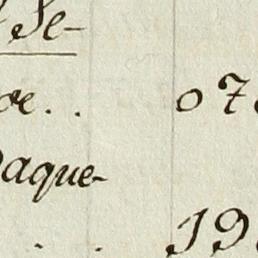 Se-
oe. . 07
aque-
. . 19